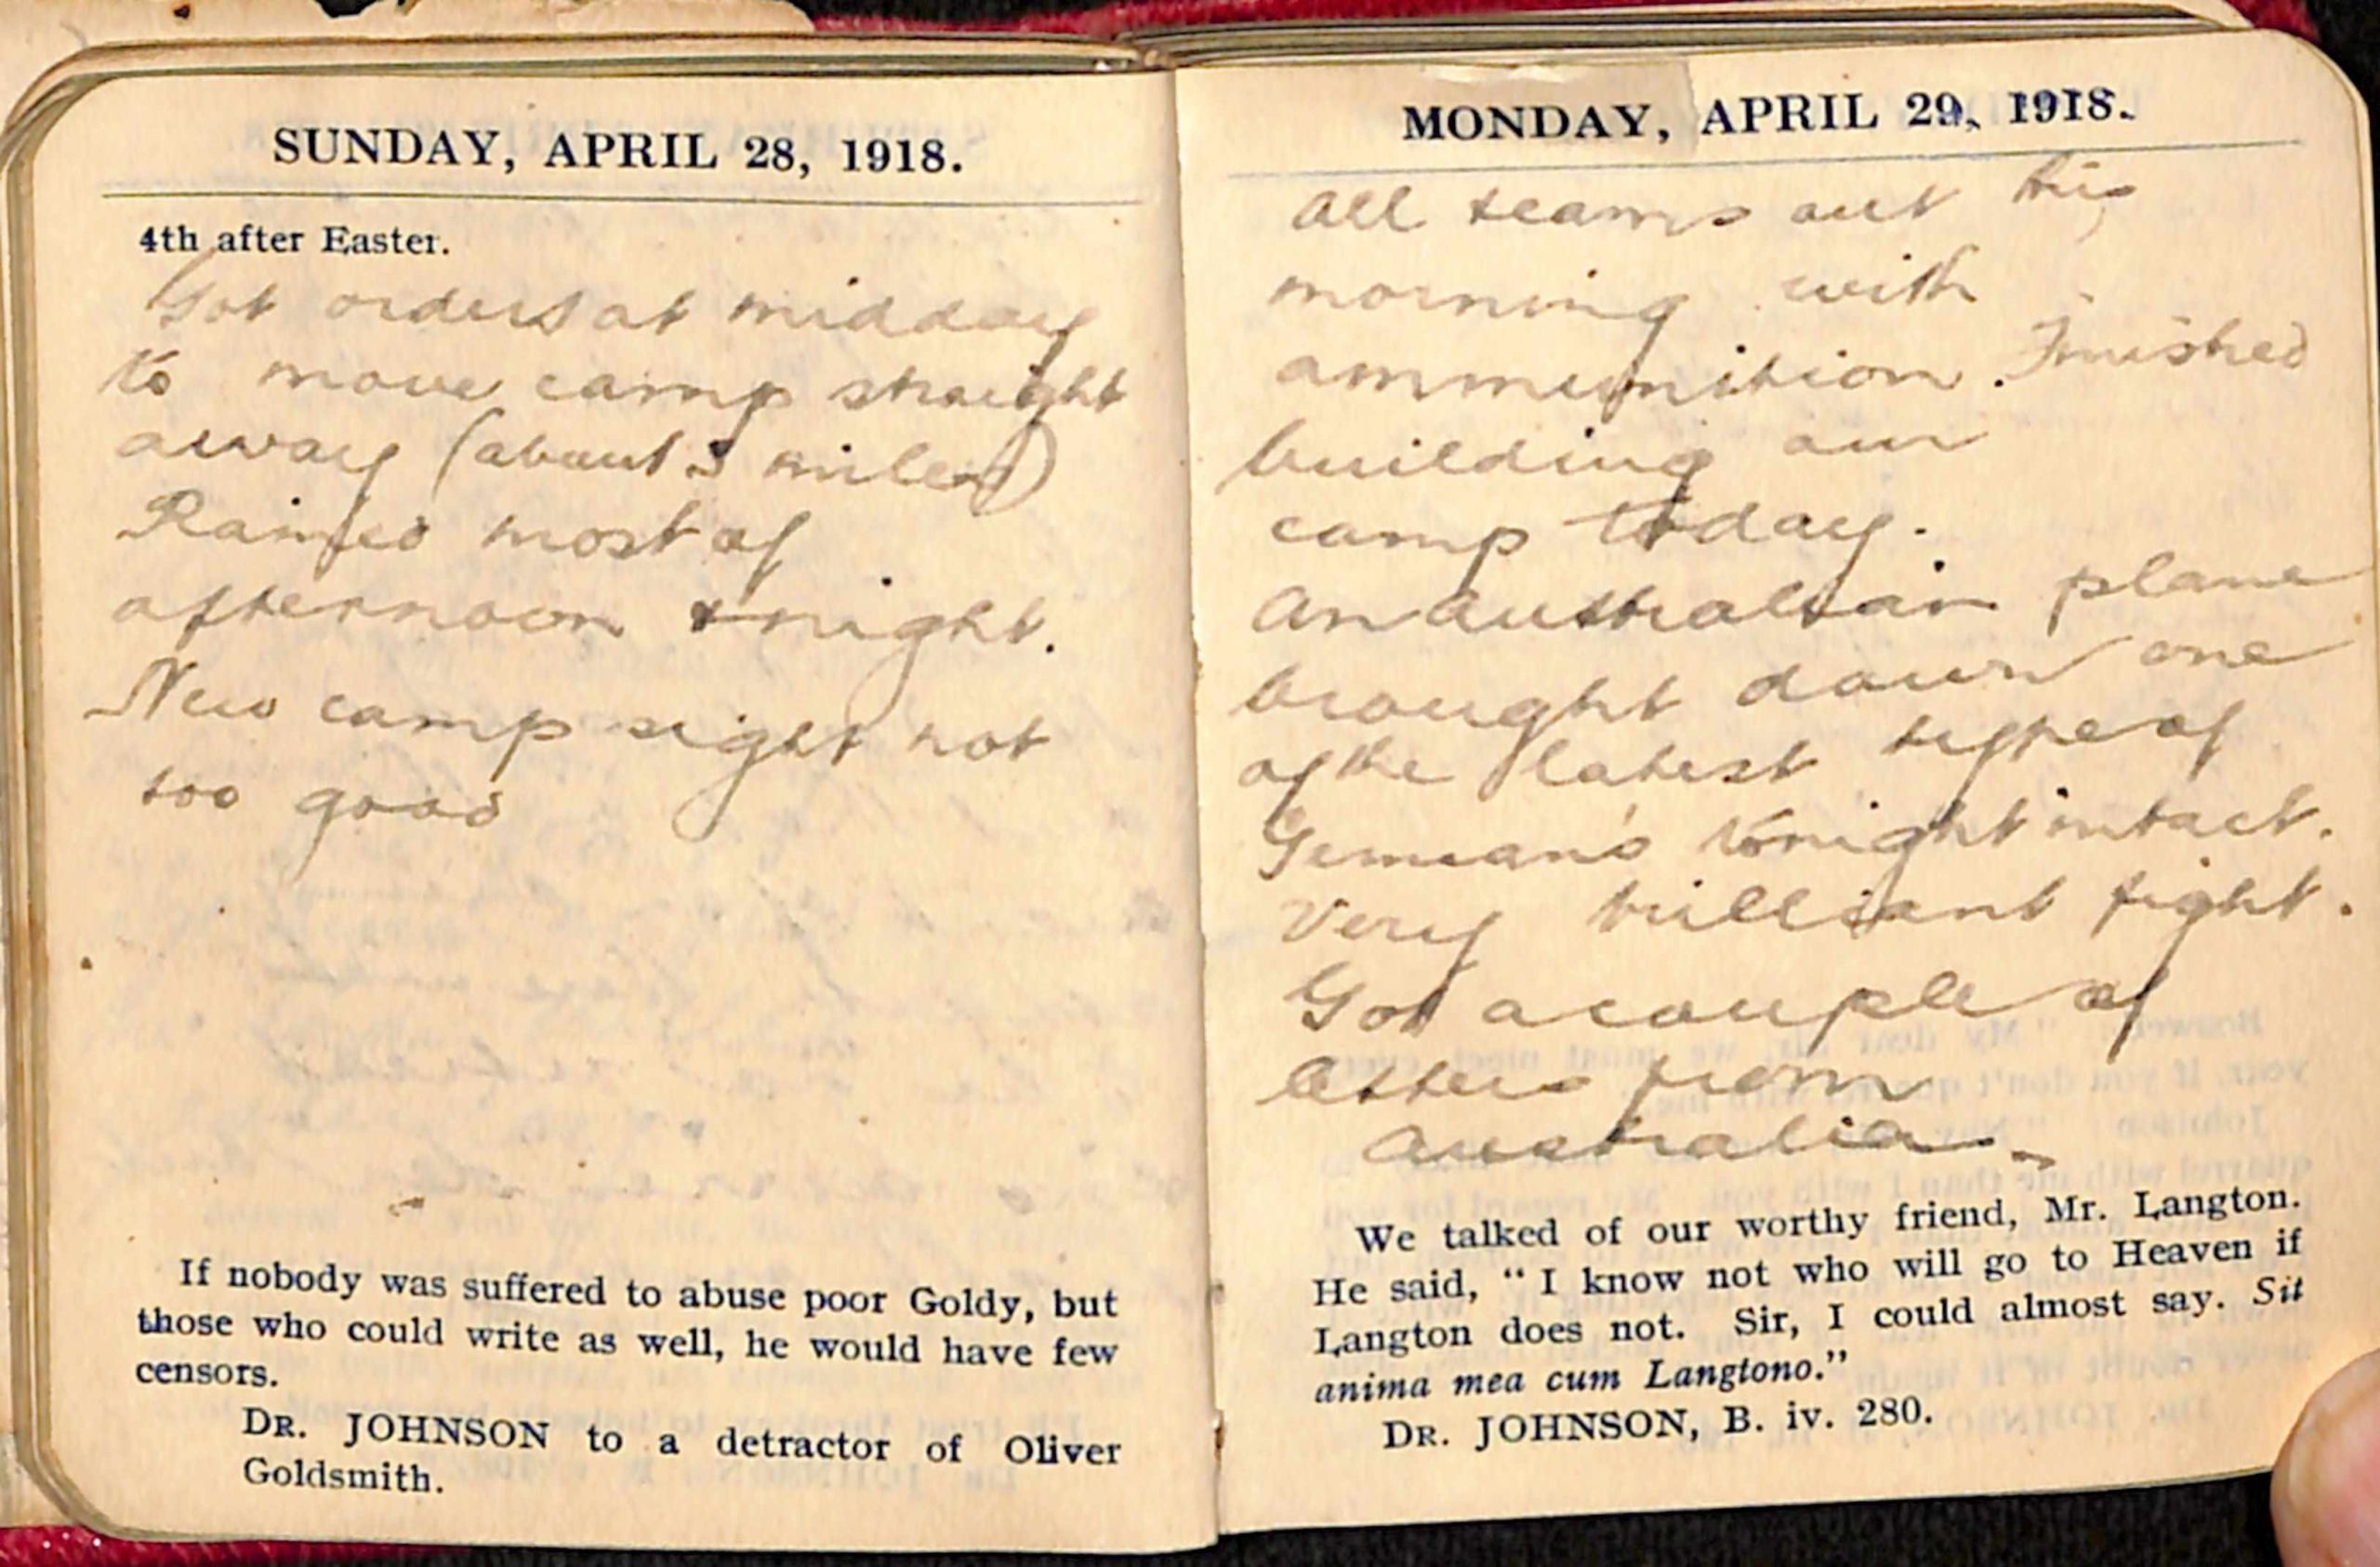 SUNDAY, APRIL 28, 1918.
4th after Easter.
Got orders at midday
to move camp straight
away (about 3 miles)
Rained most of
afternoon & night.
New camp sight not
too good
If nobody was suffered to abuse poor Goldy, but
those who could write as well, he would have few
censors.
DR. JOHNSON to a detractor of Oliver
Goldsmith.
MONDAY, APRIL 29, 1918.
All teams out this
morning with
ammunition. Finished
building our
camp today.
An Australian plane
brought down one
of the latest type of
German's tonight intact.
Very brilliant fight.
Got a couple of
letters from
Australia.
We talked of our worthy friend, Mr. Langton.
He said, "I know not who will go to Heaven if
Langton does not. Sir, I could almost say. Sit
anima mea cum Langtono."
DR. JOHNSON, B. iv. 280.